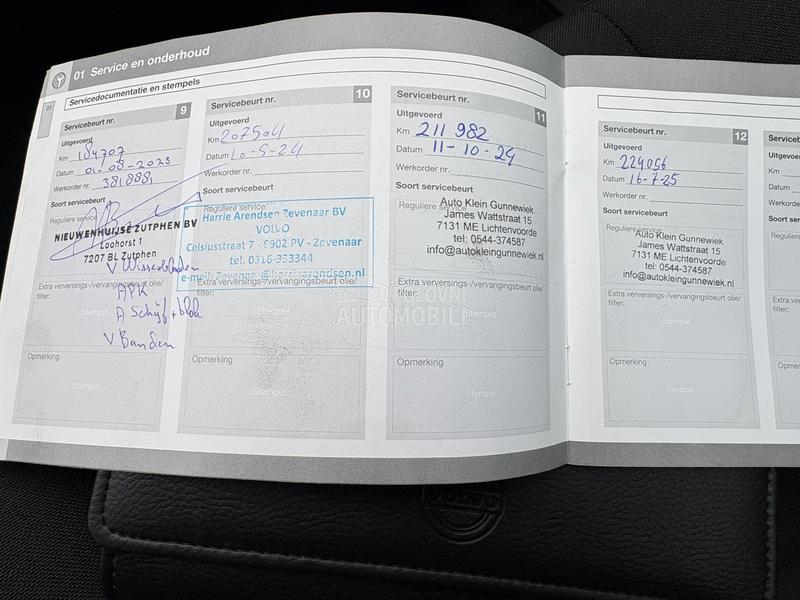 01 Service en onderhoud
01
Servicedocumentatie en stempels
Servicebeurt nr. 9
Uitgevoerd
Km 184707
Datum 01-08-2023
Werkorder nr. 381888
Soort servicebeurt
Reguliere service
NIEUWENHUIJSE ZUTPHEN BV
Loohorst 1
7207 BL Zutphen
V Wisserbladen
Extra verversings-/vervangingsbeurt olie/
filter:
APK
A Schijf + blok
Stempel
V Banden
Opmerking
Stempel
Servicebeurt nr. 10
Uitgevoerd
Km 207504
Datum 10-5-24
Werkorder nr.
Soort servicebeurt
Reguliere service
Harrie Arendsen Zevenaar BV
VOLVO
Celsiusstraat 7 - 6902 PV - Zevenaar
tel. 0316-333344
e-mail: Zevenaar@harriearendsen.nl
Extra verversings-/vervangingsbeurt olie/
filter:
Stempel
Opmerking
Stempel
Servicebeurt nr. 11
Uitgevoerd
Km 211 982
Datum 11-10-24
Werkorder nr.
Soort servicebeurt
Reguliere service
Auto Klein Gunnewiek
James Wattstraat 15
7131 ME Lichtenvoorde
tel: 0544-374587
info@autokleingunnewiek.nl
Extra verversings-/vervangingsbeurt olie/
filter:
Stempel
Opmerking
Stempel
Servicebeurt nr. 12
Uitgevoerd
Km 224056
Datum 16-7-25
Werkorder nr.
Soort servicebeurt
Reguliere service
Auto Klein Gunnewiek
James Wattstraat 15
7131 ME Lichtenvoorde
tel: 0544-374587
info@autokleingunnewiek.nl
Extra verversings-/vervangingsbeurt olie/
filter:
Stempel
Opmerking
Stempel
Servicebeurt
Uitgevoerd
Km
Datum
Werkorder
Soort
Reguliere
Extra
filter:
Opmerking
POLOVNI
AUTOMOBILI
VOLVO